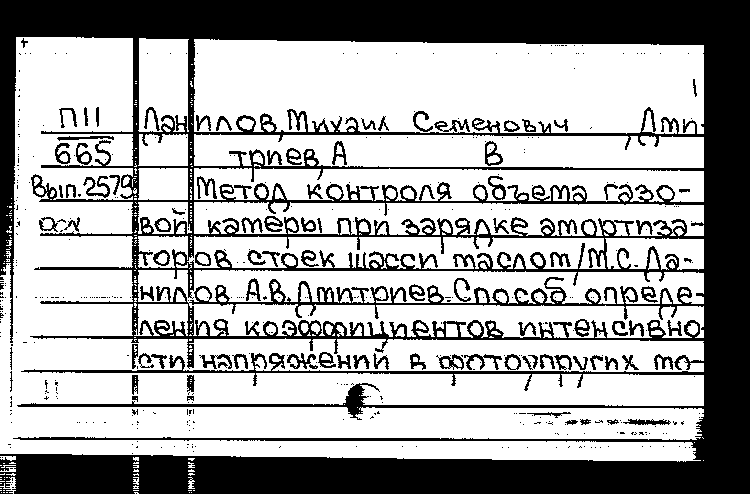 П11 Данилов, Михаил Семенович, Дмит-
665 триев, А В
Вып.2579 Метод контроля объема газо-
осн вой камеры при зарядке амортиза-
торов стоек шасси маслом/М.С.Да-
нилов, А.В.Дмитриев. Способ опреде-
ления коэффициентов интенсивно-
сти напряжений в фотоупругих мо-